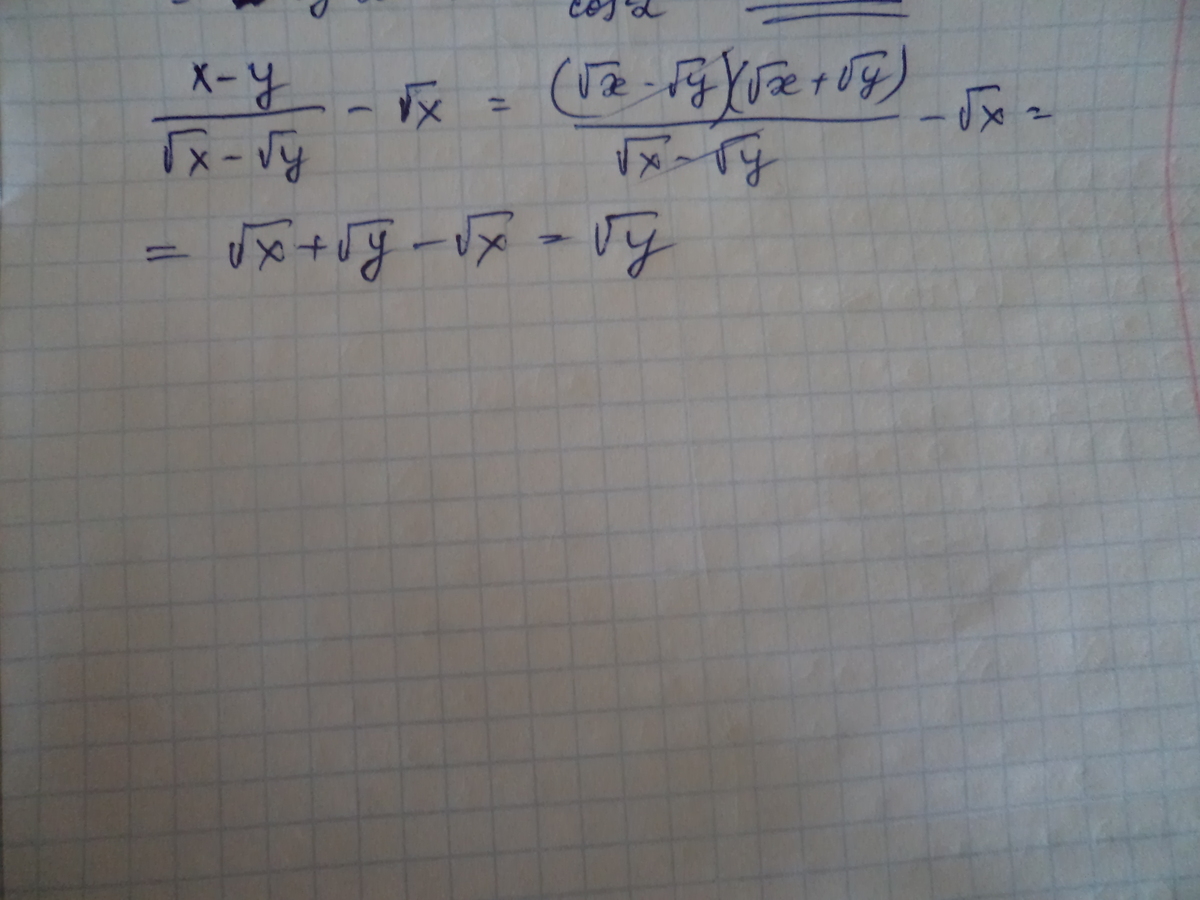 cos α
x-y / √x - √y - √x = (√x - √y)(√x + √y) / √x - √y - √x =
= √x + √y - √x = √y